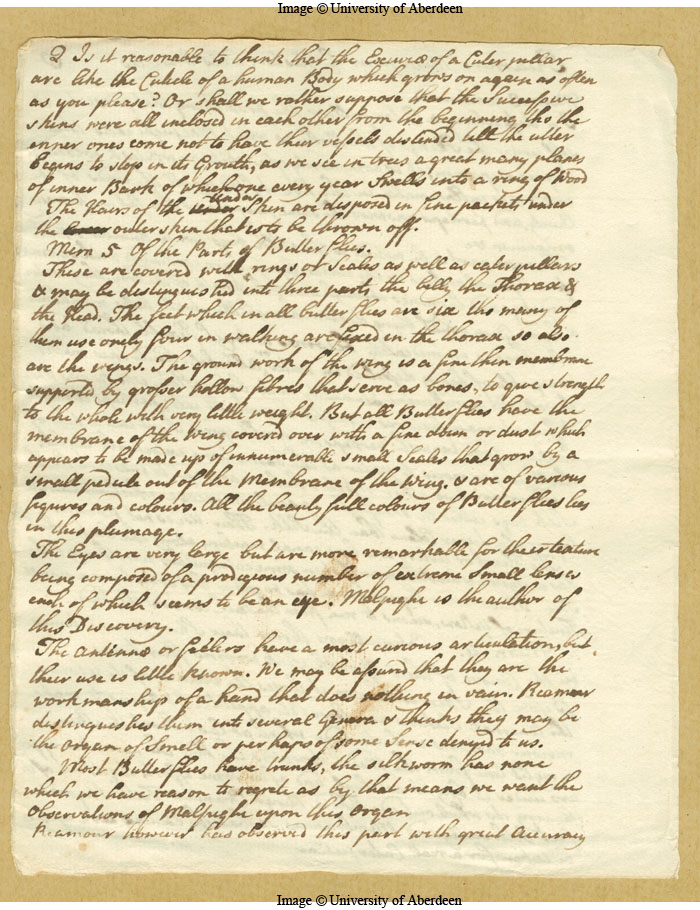 Image © University of Aberdeen
Q Is it reasonable to think that the Exuviæ of a Caterpillar
are like the Cuticle of a human Body which grows on again as often
as you please? Or shall we rather suppose that the Successive
skins were all inclosed in each other from the beginning tho the
inner ones come not to have their vessels distended till the utter
begins to stop in its Growth, as we see in trees a great many planes
of inner Bark of which one every year Swells into a ring of Wood
The Hairs of the under Skin are disposed in fine packets under
the outer skin that is to be thrown off.
Mem 5 Of the Parts of Butterflies.
These are covered with rings or Scales as well as caterpillars
& may be distinguished into three parts the belly the Thorax &
the Head. The feet which in all butterflies are six tho many of
them use onely four in walking are fixed in the thorax so also
are the wings. The ground work of the wing is a fine thin membrane
supported by grosser hollow fibres that serve as bones, to give strength
to the whole with very little weight. But all Butterflies have the
membrane of the Wing covered over with a fine down or dust which
appears to be made up of innumerable small Scales that grow by a
small pedicle out of the Membrane of the Wing. & are of various
figures and colours. All the beautyfull colours of Butterflies lies
in this plumage.
The Eyes are very large but are more remarkable for their texture
being composed of a prodigious number of extreme Small lenses
each of which seems to be an eye. Malpighi is the author of
this Discovery.
The antennæ or feelers have a most curious articulation, but
their use is little known. We may be assurd that they are the
workmanship of a hand that does nothing in vain. Reamur
distinguishes them into several Genera & thinks they may be
the organ of Smell or perhaps of some Sense denyed to us.
Most Butterflies have trunks, the silkworm has none
which we have reason to regrete as by that means we want the
Observations of Malpighi upon this Organ
Reamour however has observed this part with great Accuracy
Image © University of Aberdeen